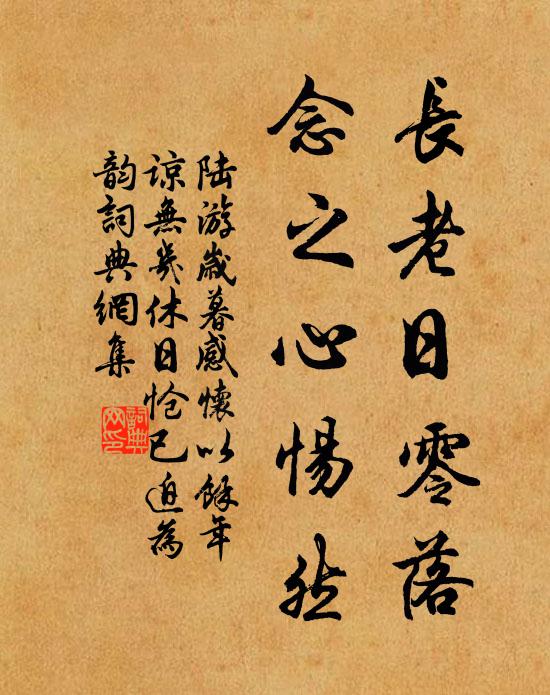 長老日零落
念之心惕然
陸游歲暮感懷以餘年
諒無幾休日愴已迫為
韵詞典網集
詞典網印